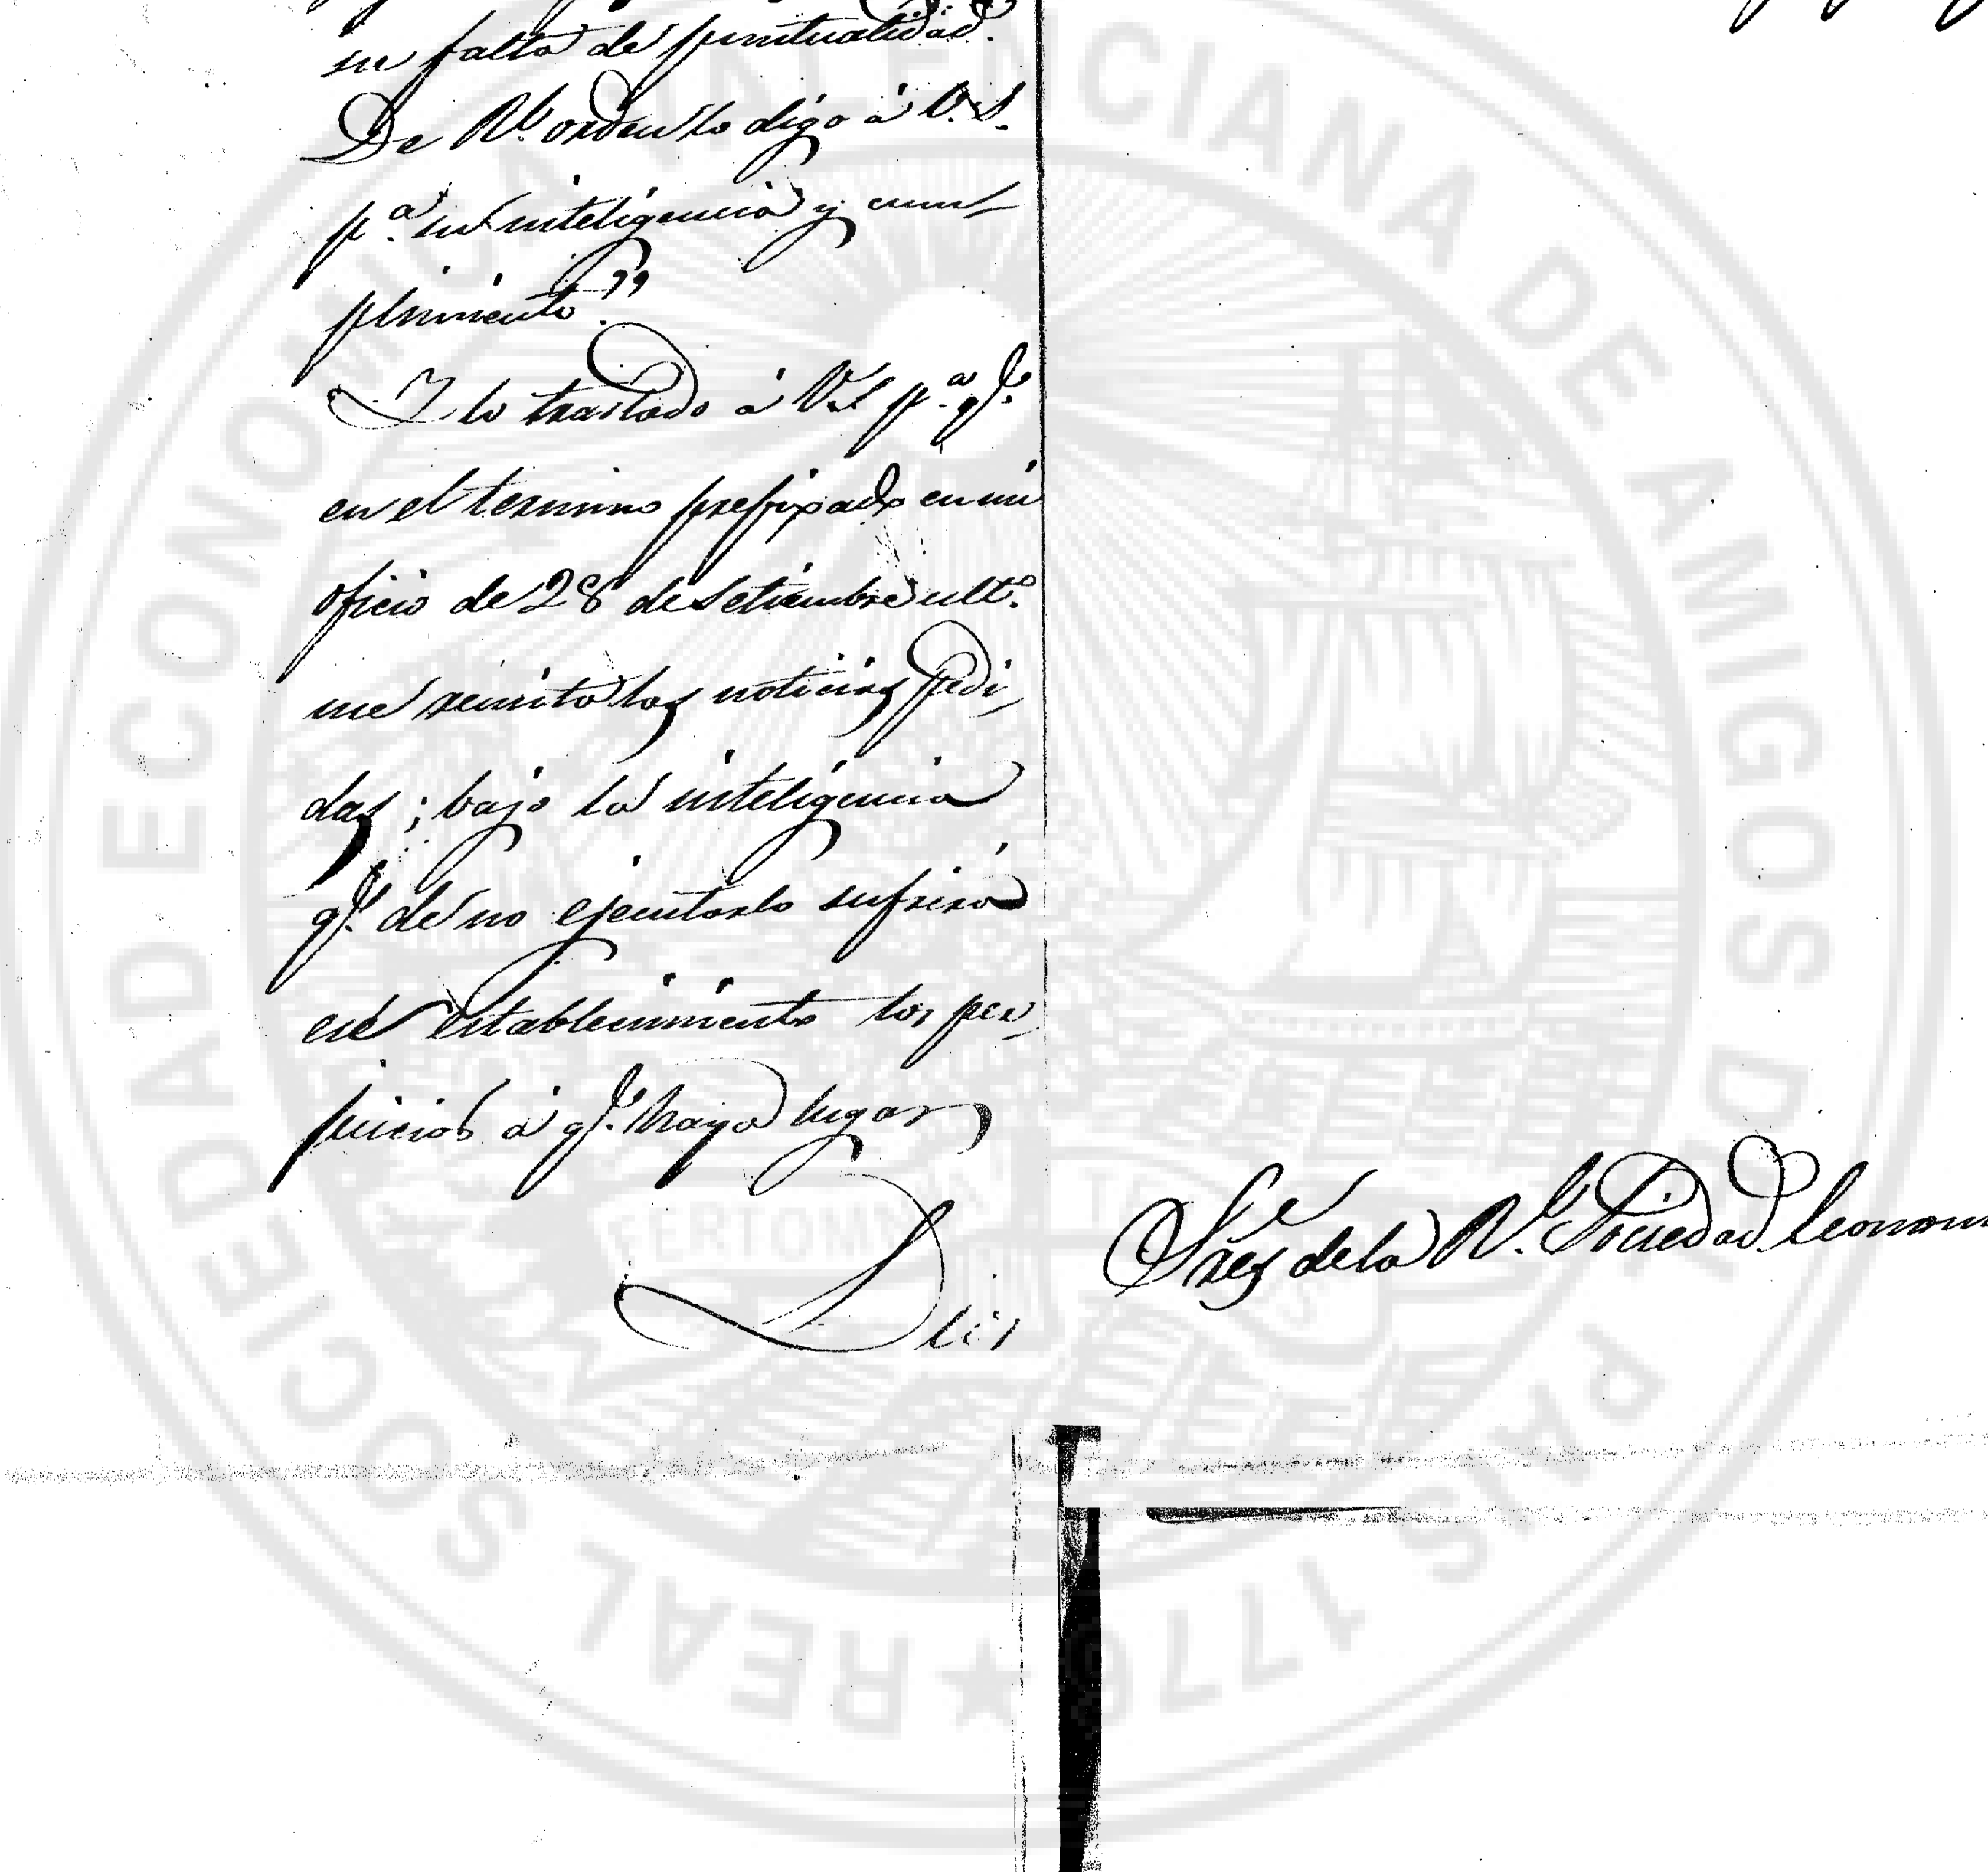 su falta de puntualidad.
De Rl. orden lo digo á V.S.
pa. su inteligencia y cum-
plimiento."
Y lo traslado á V.S pa. qe.
en el termino prefixado en mi
oficio de 28 de Setiembre ulto.
me remita las noticias pedi-
das; bajo la inteligencia
qe. de no ejecutarlo sufrirá
ese establecimiento los per-
juicios á qe. haya lugar
Dios
Sres de la Rl. Sociedad Econom
REAL SOCIEDAD ECONOMICA VALENCIANA DE AMIGOS DEL PAIS 1776